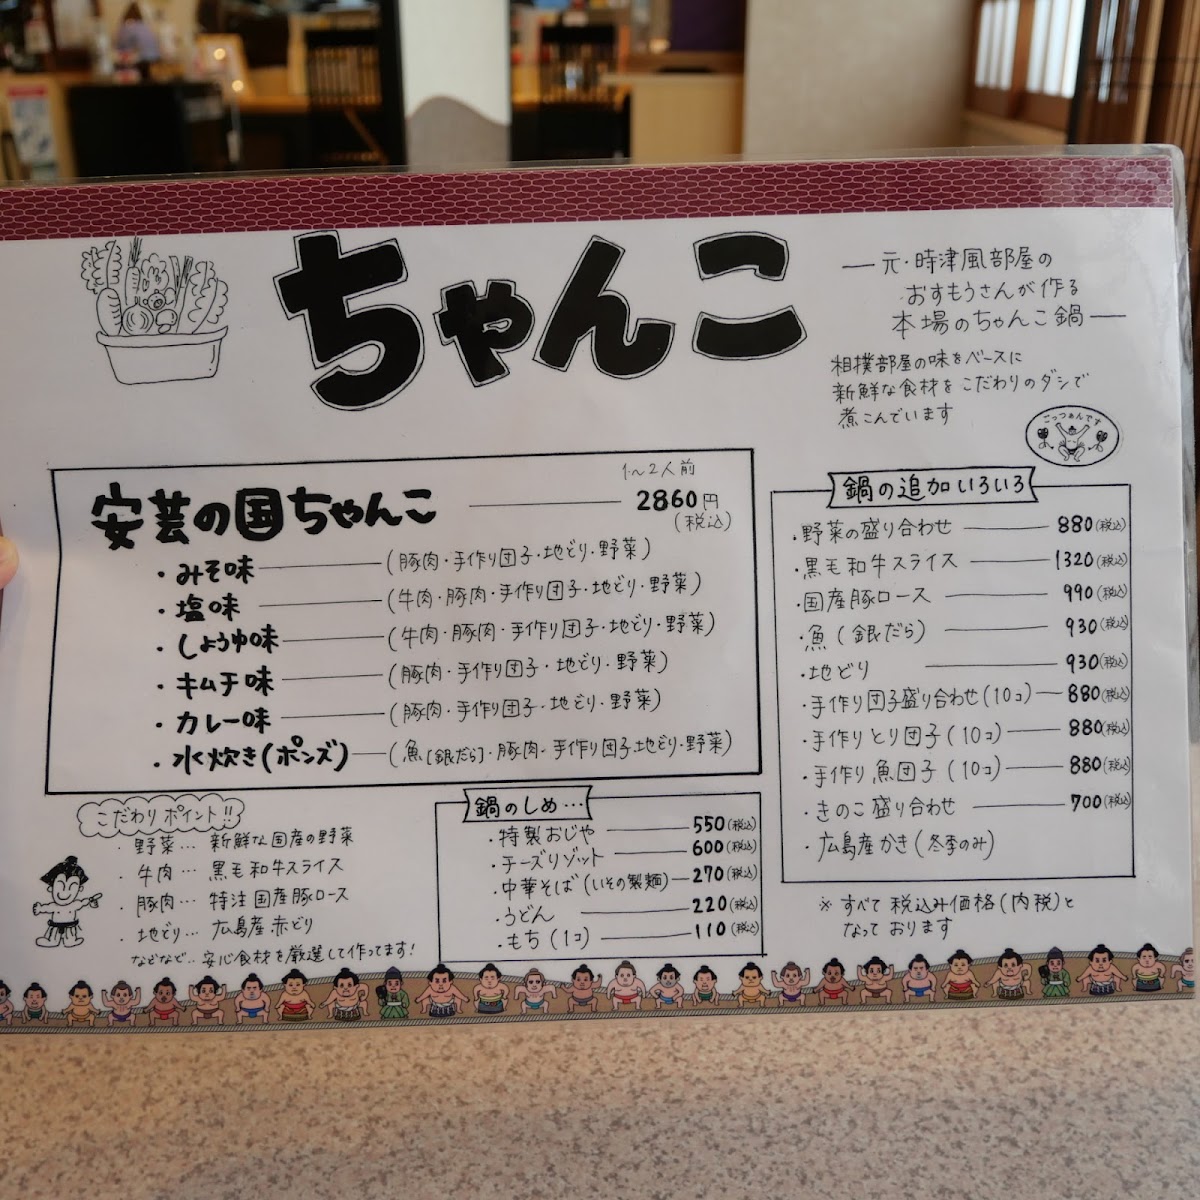 ちゃんこ
― 元・時津風部屋の
おすもうさんが作る
本場のちゃんこ鍋 ―
相撲部屋の味をベースに
新鮮な食材をこだわりのダシで
煮こんでいます
ごっつぁんです
1〜2人前
安芸の国ちゃんこ 2860円
(税込)
・みそ味 (豚肉・手作り団子・地どり・野菜)
・塩味 (牛肉・豚肉・手作り団子・地どり・野菜)
・しょうゆ味 (牛肉・豚肉・手作り団子・地どり・野菜)
・キムチ味 (豚肉・手作り団子・地どり・野菜)
・カレー味 (豚肉・手作り団子・地どり・野菜)
・水炊き(ポンズ) (魚[銀だら]・豚肉・手作り団子地どり・野菜)
鍋の追加いろいろ
・野菜の盛り合わせ 880(税込)
・黒毛和牛スライス 1320(税込)
・国産豚ロース 990(税込)
・魚(銀だら) 930(税込)
・地どり 930(税込)
・手作り団子盛り合わせ(10コ) 880(税込)
・手作りとり団子(10コ) 880(税込)
・手作り魚団子(10コ) 880(税込)
・きのこ盛り合わせ 700(税込)
・広島産かき(冬季のみ)
※すべて税込み価格(内税)と
なっております
こだわりポイント!!
・野菜… 新鮮な国産の野菜
・牛肉… 黒毛和牛スライス
・豚肉… 特注国産豚ロース
・地どり… 広島産赤どり
などなど‥安心食材を厳選して作ってます!
鍋のしめ…
・特製おじや 550(税込)
・チーズリゾット 600(税込)
・中華そば(いその製麺) 270(税込)
・うどん 220(税込)
・もち(1コ) 110(税込)